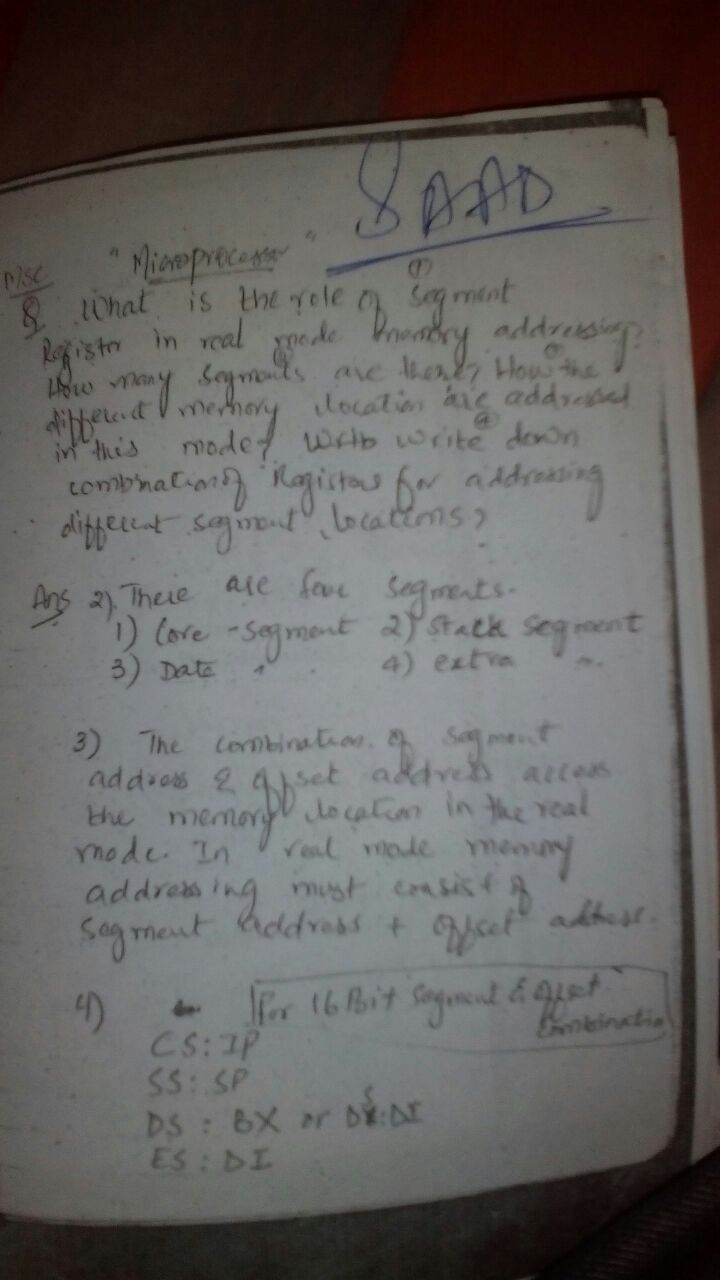 SAAD
"Microprocessor"
MSC
Q What is the role of segment ①
Register in real mode memory addressing?
How many segments are there? How the
different memory location are addressed
in this mode? write down
combination of Registers for addressing
different segment locations?
Ans 2) There are four segments.
1) Core - segment 2) Stack segment
3) Date " 4) extra "
3) The combination of segment
address & offset address access
the memory location in the real
mode. In real mode memory
addressing must consist of
segment address + offset address.
4) For 16 Bit segment & offset
combination
CS: IP
SS: SP
DS: BX or DS:DI
ES: DI